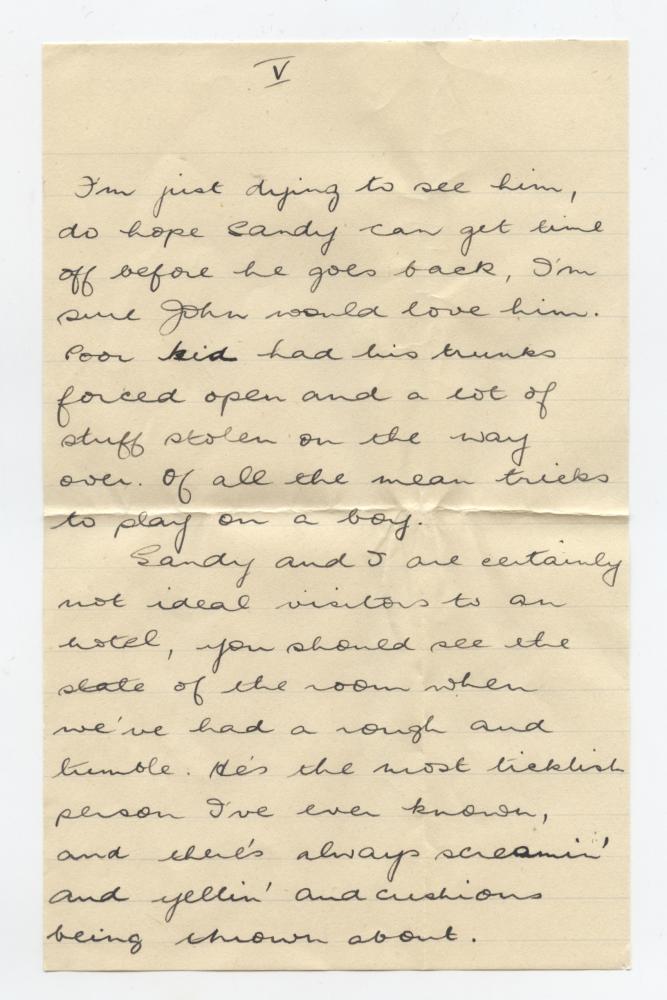 V
I'm just dying to see him,
do hope Sandy can get time
off before he goes back, I'm
sure John would love him.
Poor kid had his trunks
forced open and a lot of
stuff stolen on the way
over. Of all the mean tricks
to play on a boy.
Sandy and I are certainly
not ideal visitors to an
hotel, you should see the
state of the room when
we've had a rough and
tumble. He's the most ticklish
person I've ever known,
and there's always screamin'
and yellin' and cushions
being thrown about.